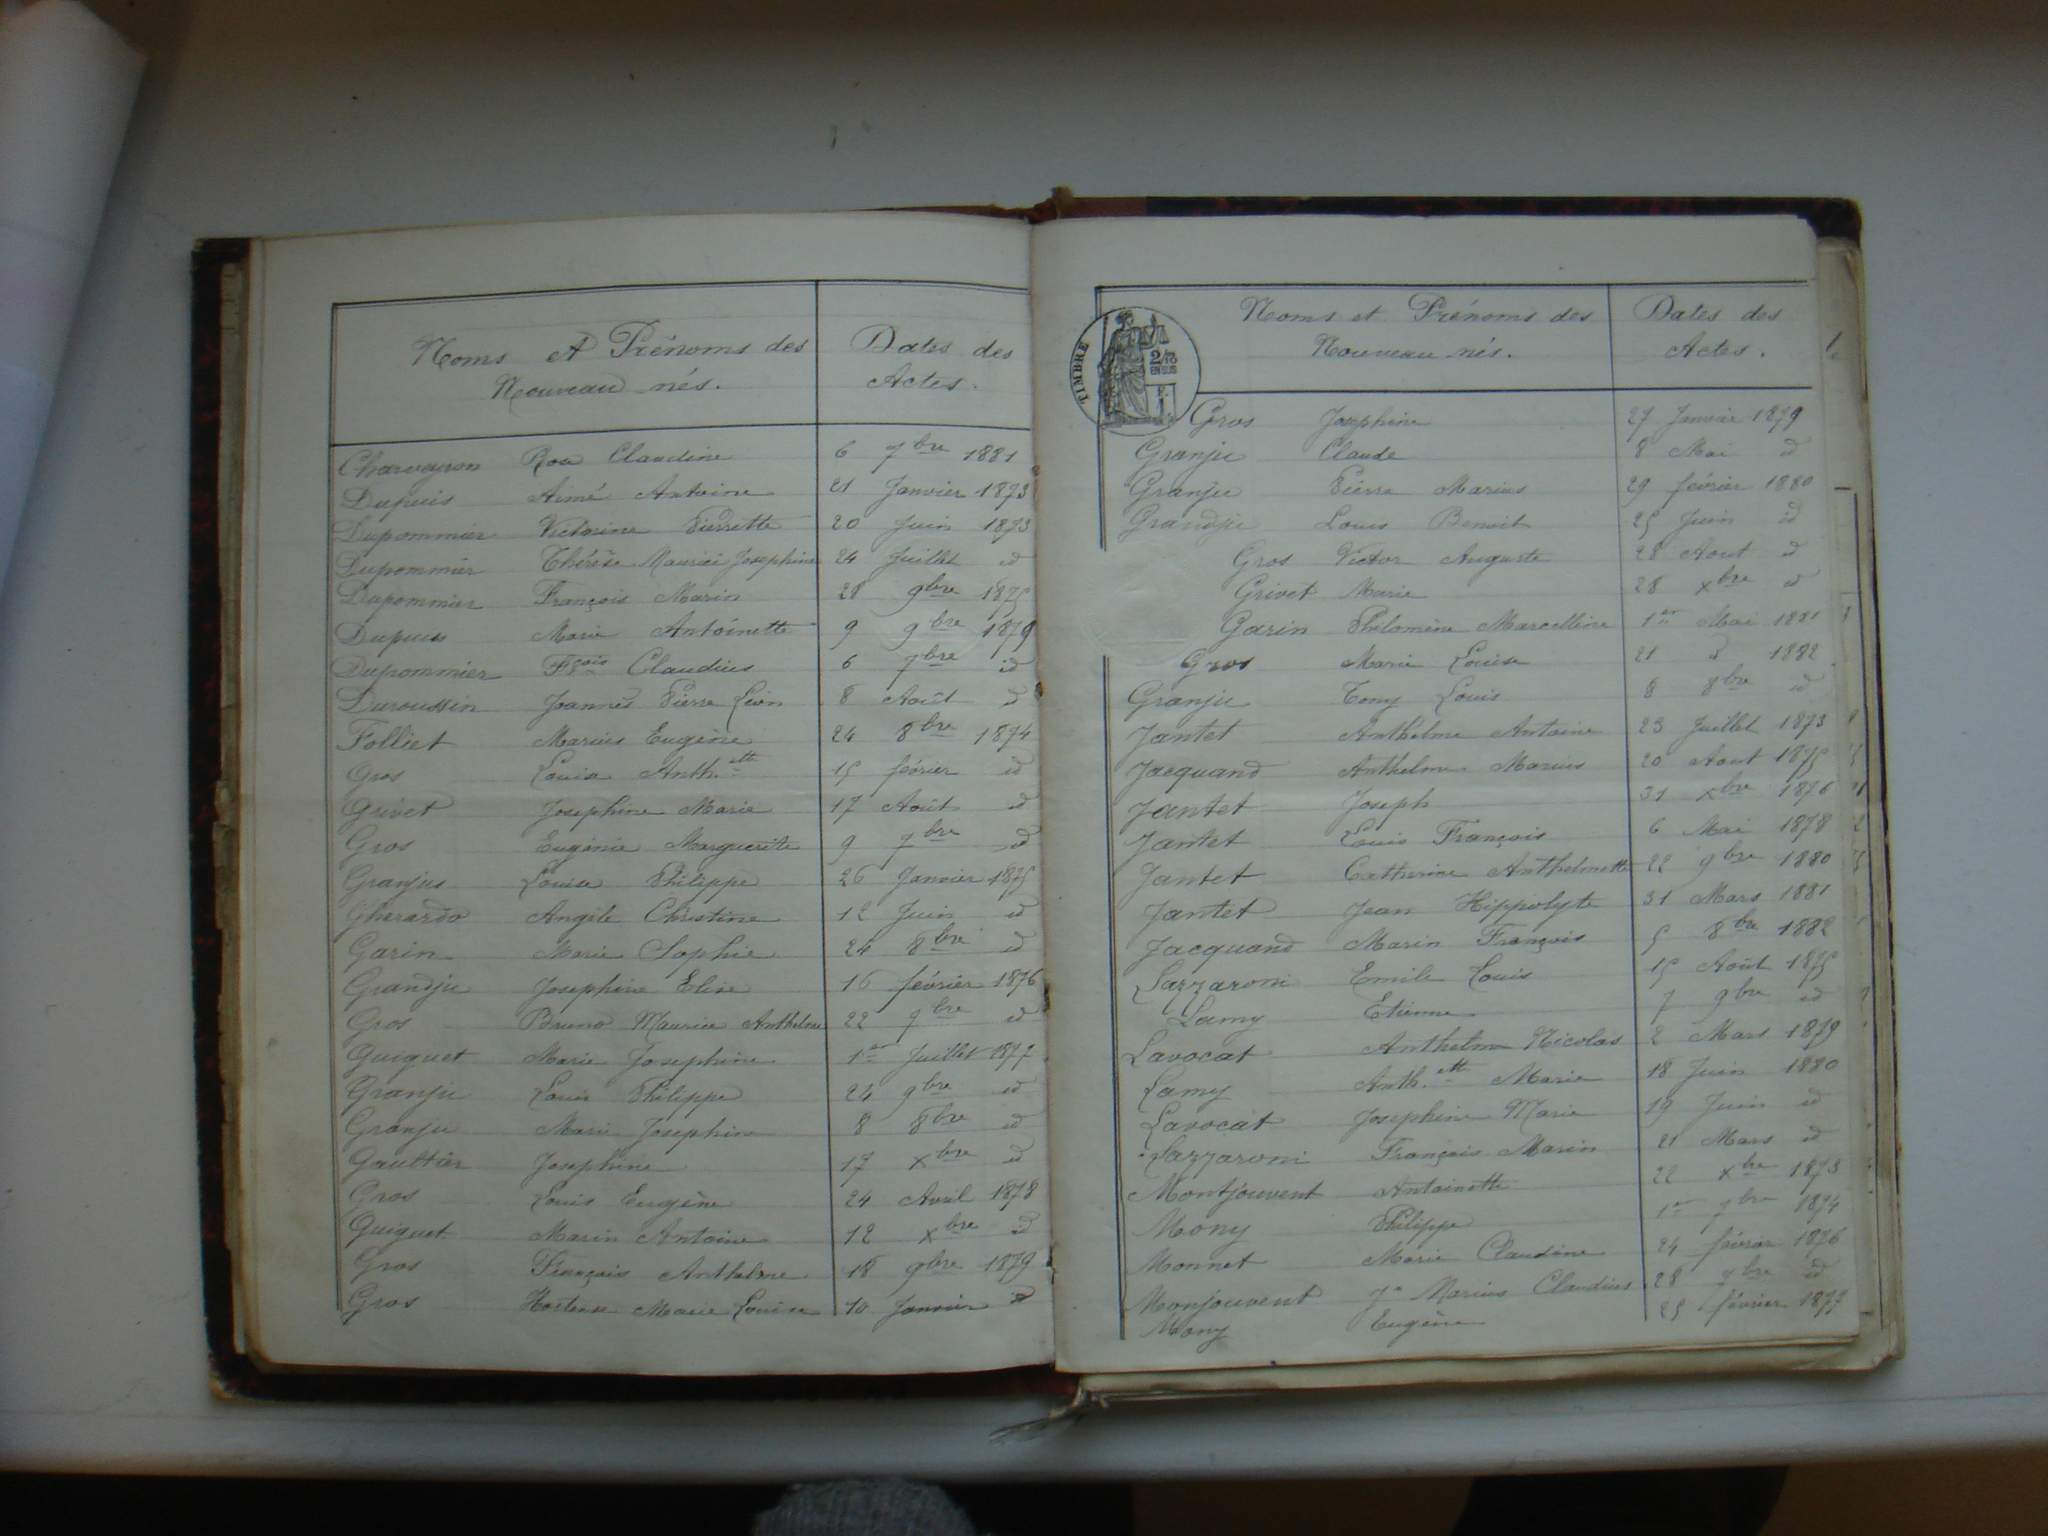 Noms et Prénoms des
Nouveau nés.
Dates des
Actes.
Charvayron Rose Claudine 6 7bre 1881
Dupuis Aimé Antoine 21 Janvier 1873
Dupommier Victorine Pierrette 20 Juin 1873
Dupommier Thérèse Maurice Josephine 24 Juillet id
Dupommier François Marin 28 9bre 1875
Dupuis Marie Antoinette 9 9bre 1879
Dupommier Fçois Claudius 6 7bre id
Duroussin Joannès Pierre Léon 8 Août id
Folliet Marius Eugène 24 8bre 1874
Gros Louise Anth.ette 15 février id
Grivet Josephine Marie 17 Août id
Gros Eugénie Marguerite 9 7bre id
Granjus Louise Philippe 26 Janvier 1875
Gherardo Angèle Christine 12 Juin id
Garin Marie Sophie 24 8bre id
Grandju Josephine Elise 16 février 1876
Gros Bruno Maurice Anthelme 22 9bre id
Guiguet Marie Josephine 1er Juillet 1877
Granju Louis Philippe 24 9bre id
Granju Marie Josephine 8 8bre id
Gauttier Josephine 17 xbre id
Gros Louis Eugène 24 Avril 1878
Guiguet Marin Antoine 12 xbre id
Gros François Anthelme 18 9bre 1879
Gros Hortense Marie Louise 10 Janvier id
TIMBRE
2/10
EN SUS
Noms et Prénoms des
Nouveau nés.
Dates des
Actes.
Gros Josephine 27 Janvier 1879
Granju Claude 8 Mai id
Granju Pierre Marius 29 février 1880
Grandju Louis Benoit 25 Juin id
Gros Victor Auguste 28 Aout id
Grivet Marie 28 xbre id
Garin Philomène Marcelline 1er Mai 1881
Gros Marie Louise 21 d 1882
Granju Tony Louis 8 8bre id
Jantet Anthelme Antoine 23 Juillet 1873
Jacquand Anthelme Marius 20 Aout 1875
Jantet Joseph 31 xbre 1876
Jantet Louis François 6 Mai 1878
Jantet Catherine Anthelmette 22 9bre 1880
Jantet Jean Hippolyte 31 Mars 1881
Jacquand Marin François 5 8bre 1882
Lazzaroni Emile Louis 15 Août 1875
Lamy Etienne 7 9bre id
Lavocat Anthelme Nicolas 2 Mars 1879
Lamy Anth.ette Marie 18 Juin 1880
Lavocat Josephine Marie 19 Juin id
Lazzaroni François Marin 21 Mars id
Montjouvent Antoinette 22 xbre 1873
Mony Philippe 1er 7bre 1874
Monnet Marie Claudine 24 février 1876
Monjouvent Jn Marius Claudius 28 9bre id
Mony Eugène 25 février 1877